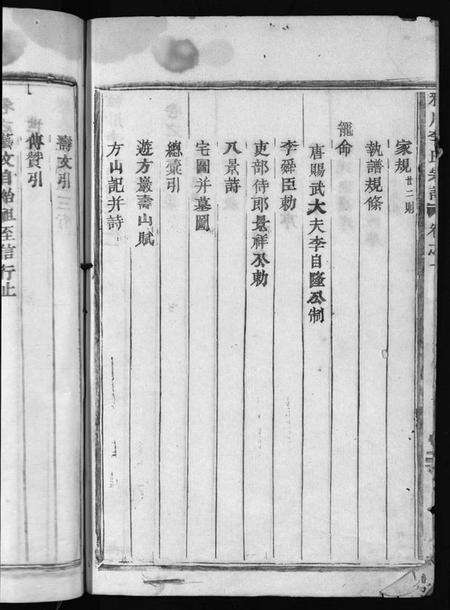 李氏宗譜 卷之一
家規 廿二則
執譜規條
寵命
唐賜武大夫李自隆公制
李舜臣勅
吏部侍郎晃祥公勅
八景詩
宅圖并墓圖
總彙引
遊方巖壽山賦
方山記并詩
壽文引
傳贊引
舊文自始祖至信行止